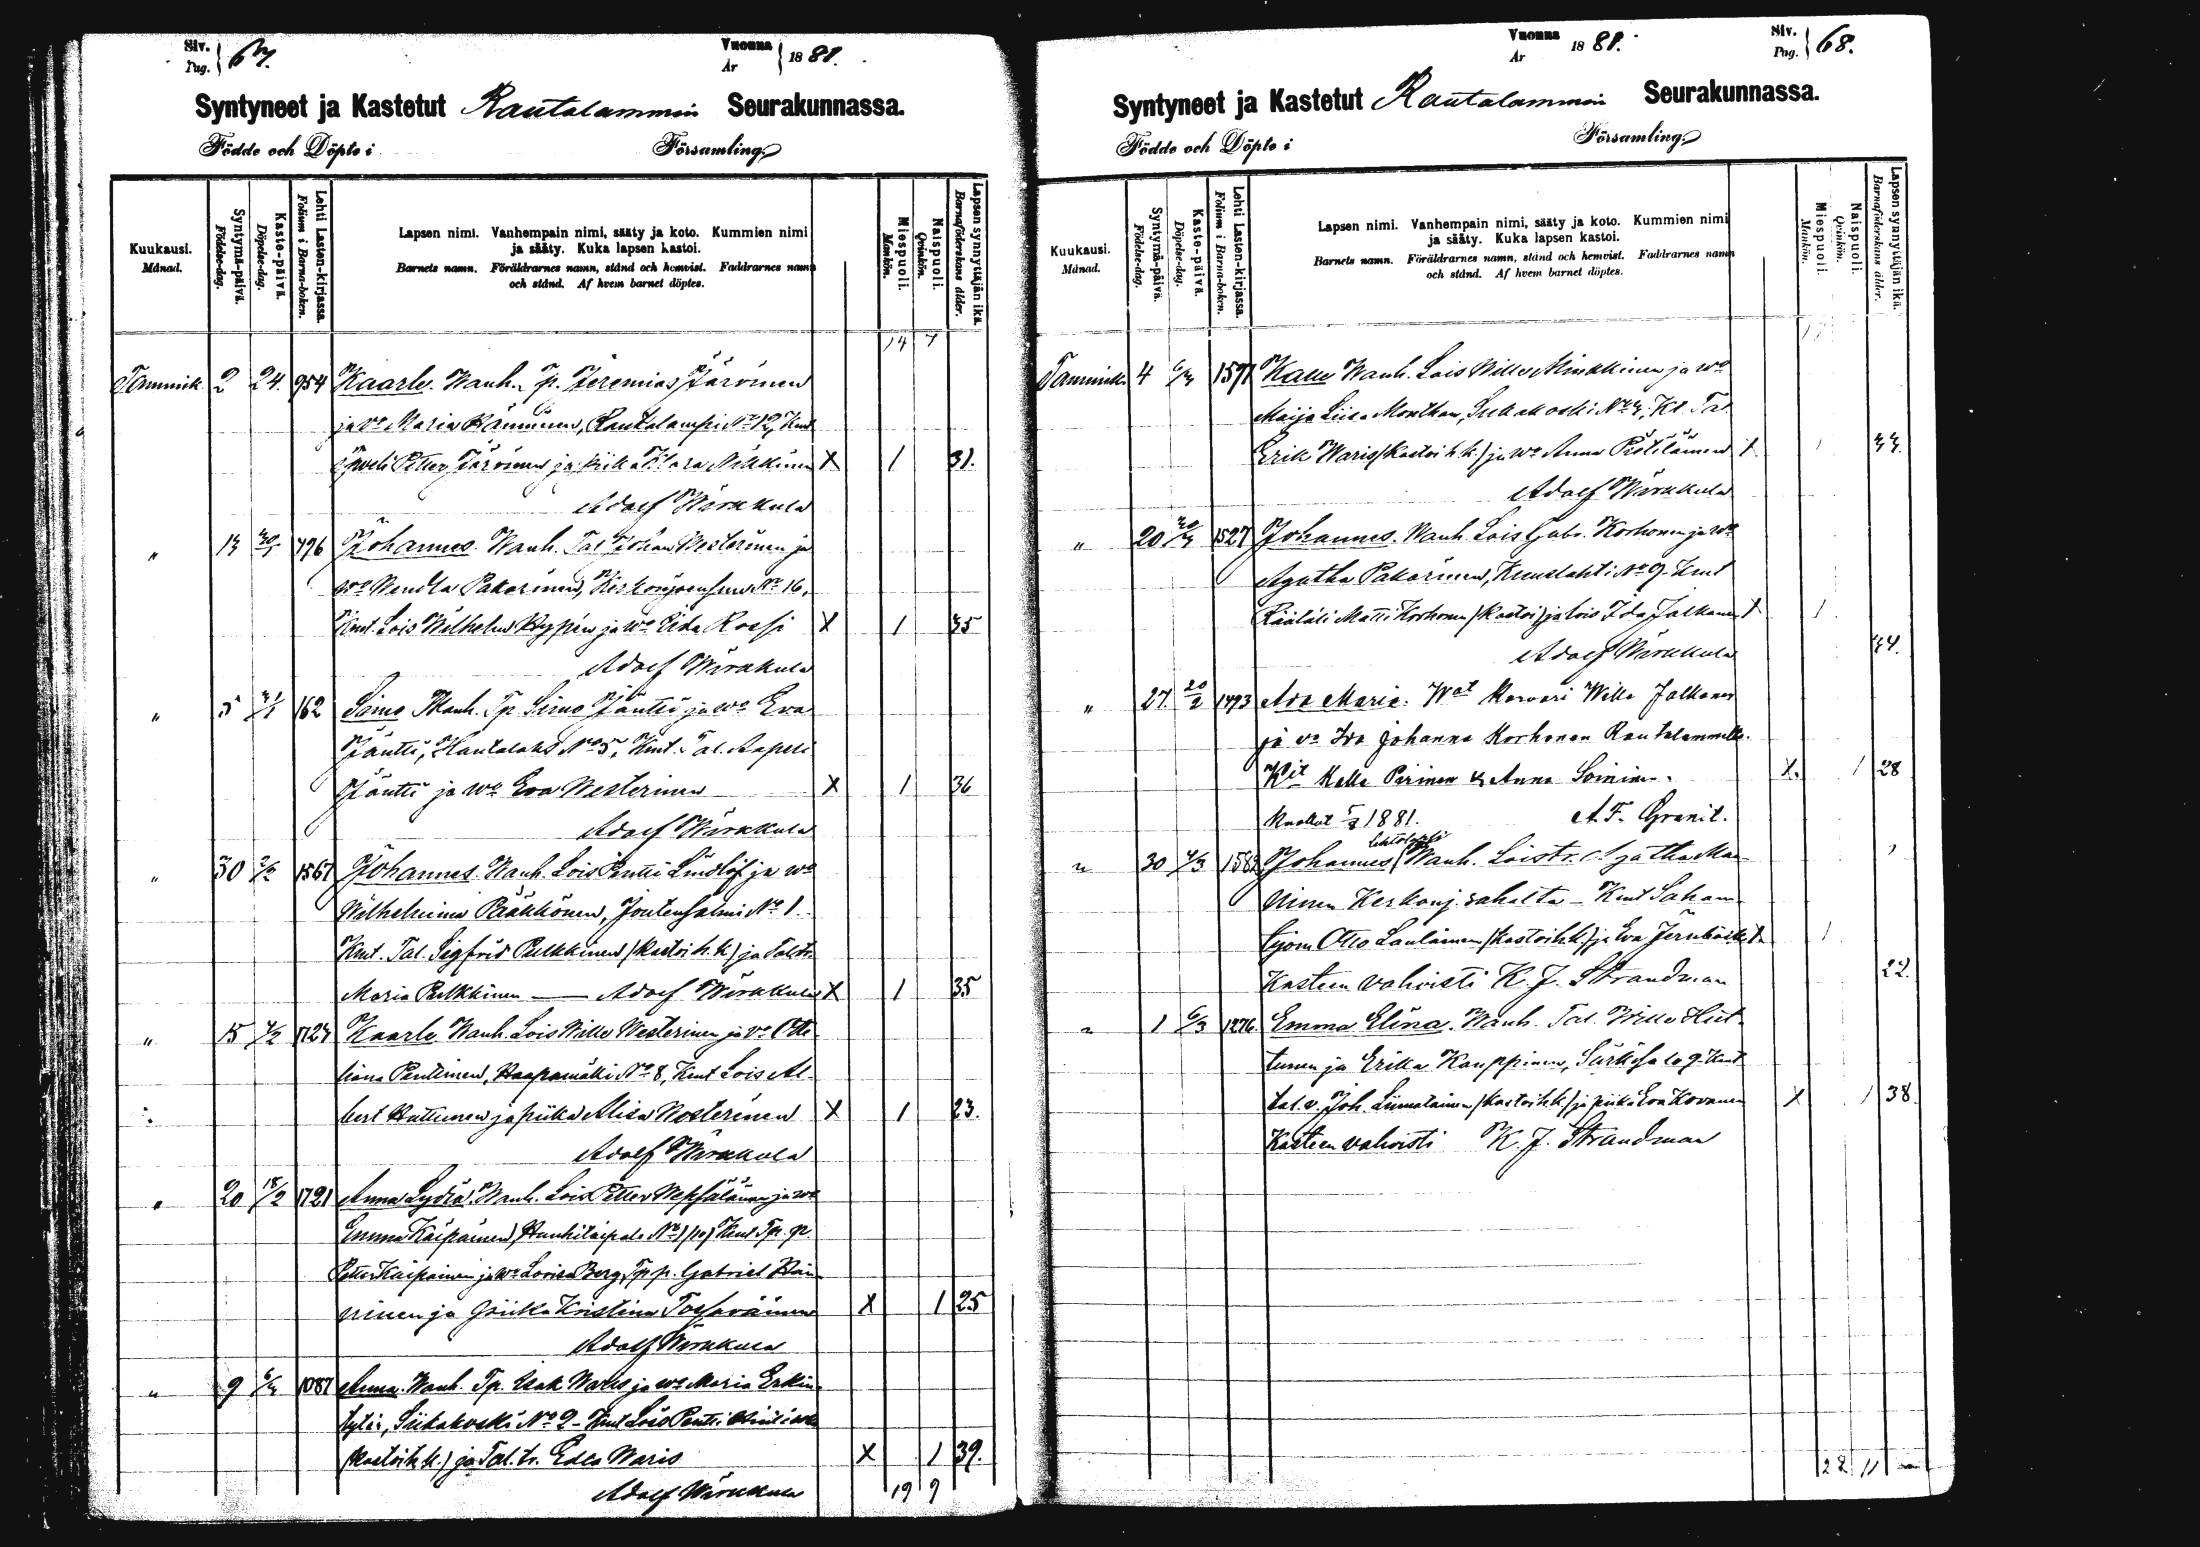 Siv. Pag. 67. Vuonna År 1881.
Syntyneet ja Kastetut Rautalammin Seurakunnassa.
Födde och Döpte i Församling.
Kuukausi. Månad. Syntymä-päivä. Födelse-dag. Kaste-päivä. Döpelse-dag. Lehti Lasten-kirjassa. Folium i Barna-boken. Lapsen nimi. Vanhempain nimi, sääty ja koto. Kummien nimi ja sääty. Kuka lapsen kastoi. Barnets namn. Föräldrarnes namn, stånd och hemvist. Faddrarnes namn och stånd. Af hvem barnet döptes. Miespuoli. Mankön. Naispuoli. Qvinkön. Lapsen synnyttäjän ikä. Barnaföderskans ålder.
14 7
Tammik. 2 24. 954 Kaarle. Wanh. Tp. Jeremias Järvinen
ja Vo Maria Känninen, Rautalampi No 12, Kmt
Petter Järvinen ja piika Klara Nikkinen X 1 31.
Adolf Wirukula
" 13 30/1 796 Johannes. Wanh. Tal. Johan Westerinen ja
wo Wendla Pakarinen, No 16.
Kmt. Lois Wilhelm Hyppén ja wo Rossi X 1 35
Adolf Wirukula
" 5 31/1 162 Simo Wanh. Tp. Simo Jäntti ja wo Eva
Jäntti, No 5, Kmt. Tal. Aapeli
Jäntti ja wo Eva Westerinen X 1 36
Adolf Wirukula
" 30 2/2 1567 Johannes. Wanh. Lois Pentti Lindlöf ja wo
Wilhelmina Pääkkönen, Joutensalmi No 1.
Kmt. Tal. Sigfrid Pulkkinen (kastoi h.h.) ja Tal. tr.
Maria Pulkkinen — Adolf Wirukula X 1 35
" 15 4/2 1727 Kaarle. Wanh. Lois Wille Westerinen ja Vo Otti-
liana Penttinen, Haapamäki No 8, Kmt Lois Al-
bert Hattunen ja piika Alisa Westerinen X 1 23.
Adolf Wirukula
" 20 18/2 1721 Anna Lydia. Wanh. Lois Petter Wepsäläinen ja wo
Emma Käipäinen, Hanhitaipale No 1 (10) Kmt Tp. p.
Petter Käipäinen ja wo Lovisa Berg, Tp. p. Gabriel Hän-
ninen ja Piika Kristina Tossavainen X 1 25
Adolf Wirukula
" 9 6/3 1087 Anna. Wanh. Tp. Isak Waris ja wo Maria Erkin
tytär, Siikakoski No 2 - Kmt Lois Pentti
(kastoi h.h.) ja Tal. tr. Eeva Waris X 1 39.
Adolf Wirukula
19 9
Vuonna År 1881. Siv. Pag. 68.
Syntyneet ja Kastetut Rautalammin Seurakunnassa.
Födde och Döpte i Församling.
Kuukausi. Månad. Syntymä-päivä. Födelse-dag. Kaste-päivä. Döpelse-dag. Lehti Lasten-kirjassa. Folium i Barna-boken. Lapsen nimi. Vanhempain nimi, sääty ja koto. Kummien nimi ja sääty. Kuka lapsen kastoi. Barnets namn. Föräldrarnes namn, stånd och hemvist. Faddrarnes namn och stånd. Af hvem barnet döptes. Miespuoli. Mankön. Naispuoli. Qvinkön. Lapsen synnyttäjän ikä. Barnaföderskans ålder.
Tammik. 4 6/3 1571 Kalle Wanh. Lois Wille Minkkinen ja wo
Maija Liisa Monthan, No 3, Kt. Tal.
Erik Waris (kastoi h.h.) ja wo Anna Pietiläinen X 1 33.
Adolf Wirukula
" 20 20/3 1527 Johannes. Wanh. Lois Gabr. Korhonen ja wo
Agatha Pakarinen, No 9. Kmt
Räätäli Matti Korhonen (kastoi) ja lois Ida Jalkanen X 1
Adolf Wirukula 34.
" 27. 20/2 1493 Ada Maria. Wat Karvari Wille Jalkanen
ja vo Ida Johanna Korhonen Rautalammilla.
Kit Kalle Pirinen & Anna Soininen. X. 1 28
Kuollut 1881. A. F. Granit.
" 30 4/3 1583 Johannes (Wanh. Loistr. Agatha Man-
ninen Kerkonj. sahalta - Kmt Sahan-
tjom Otto Laulainen (kastoi h.h.) ja Eva X 1
Kasteen vahvisti K. J. Strandman 22.
" 1 6/3 1276. Emma Elina. Wanh. Tal. Wille Hut-
tunen ja Erika Kauppinen, Särkisalo 9. Kmt
tal. v. Joh. Liimatainen (kastoi h.h.) ja piika Eva Kovanen X 1 38.
Kasteen vahvisti K. J. Strandman
22 11